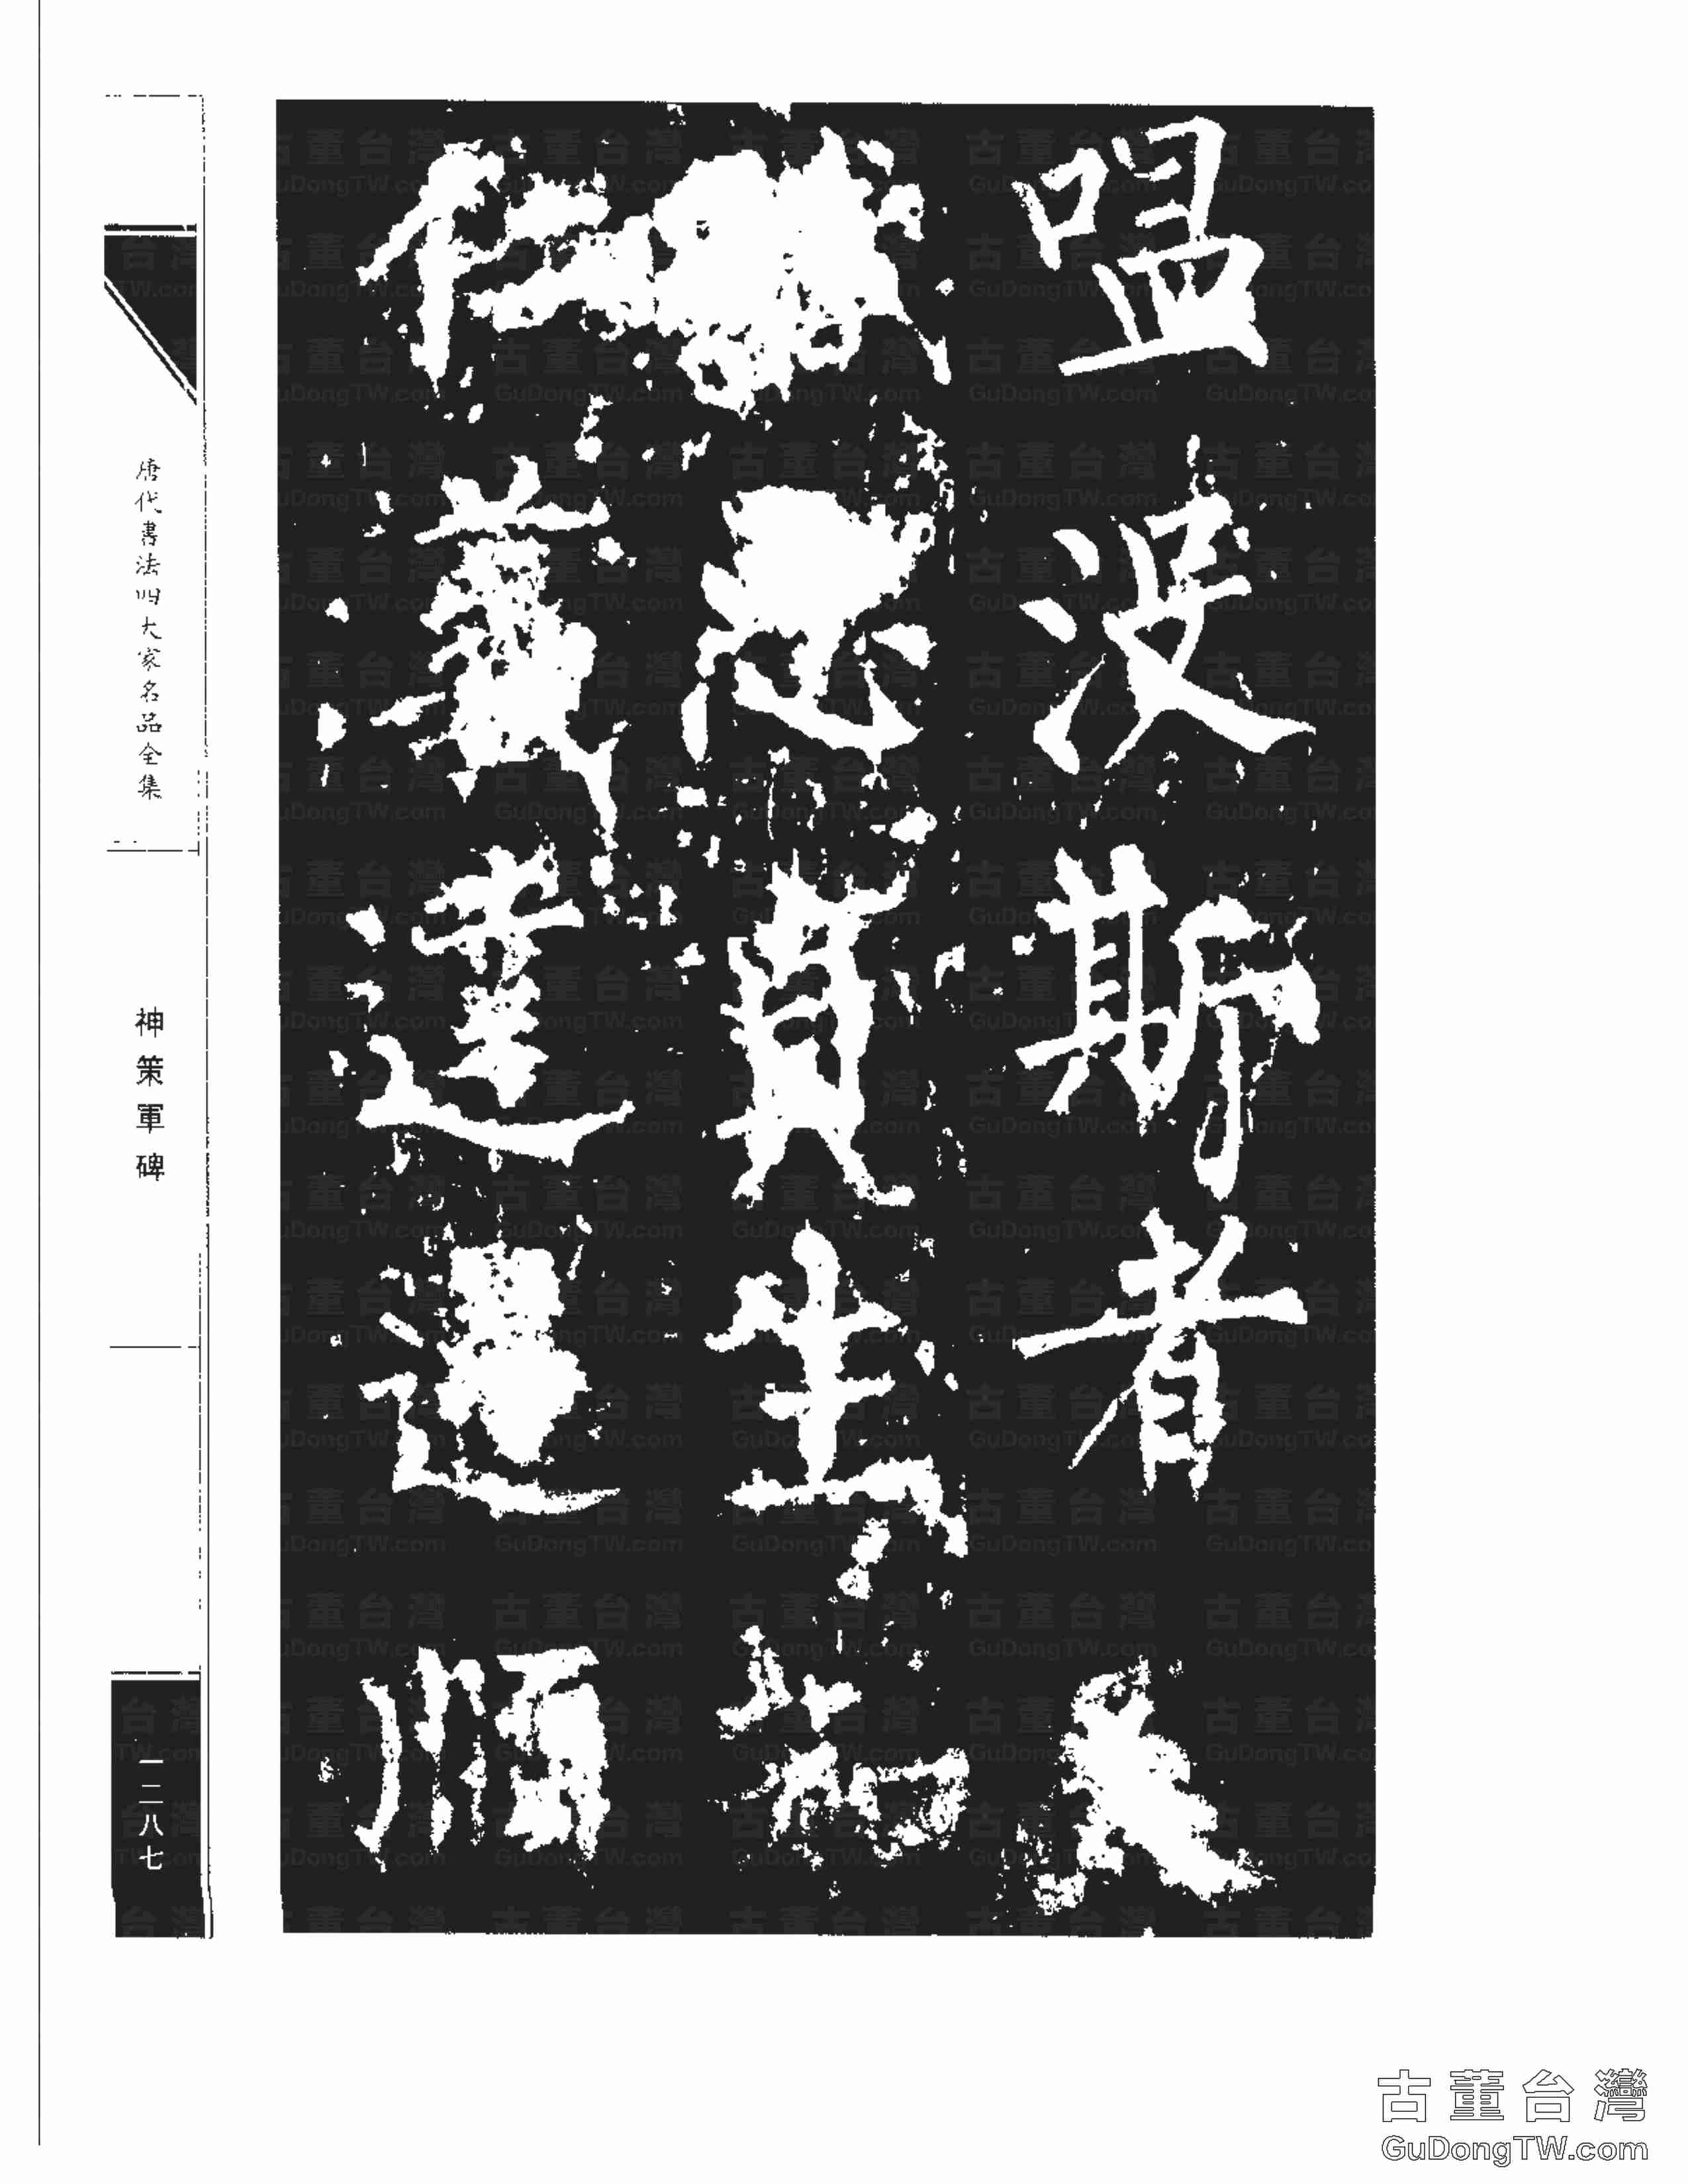 嗢没斯者天
忠貞生知
仁義達順
唐代書法四大家名品全集
神策軍碑
一二八七
古董台灣
GuDongTW.com